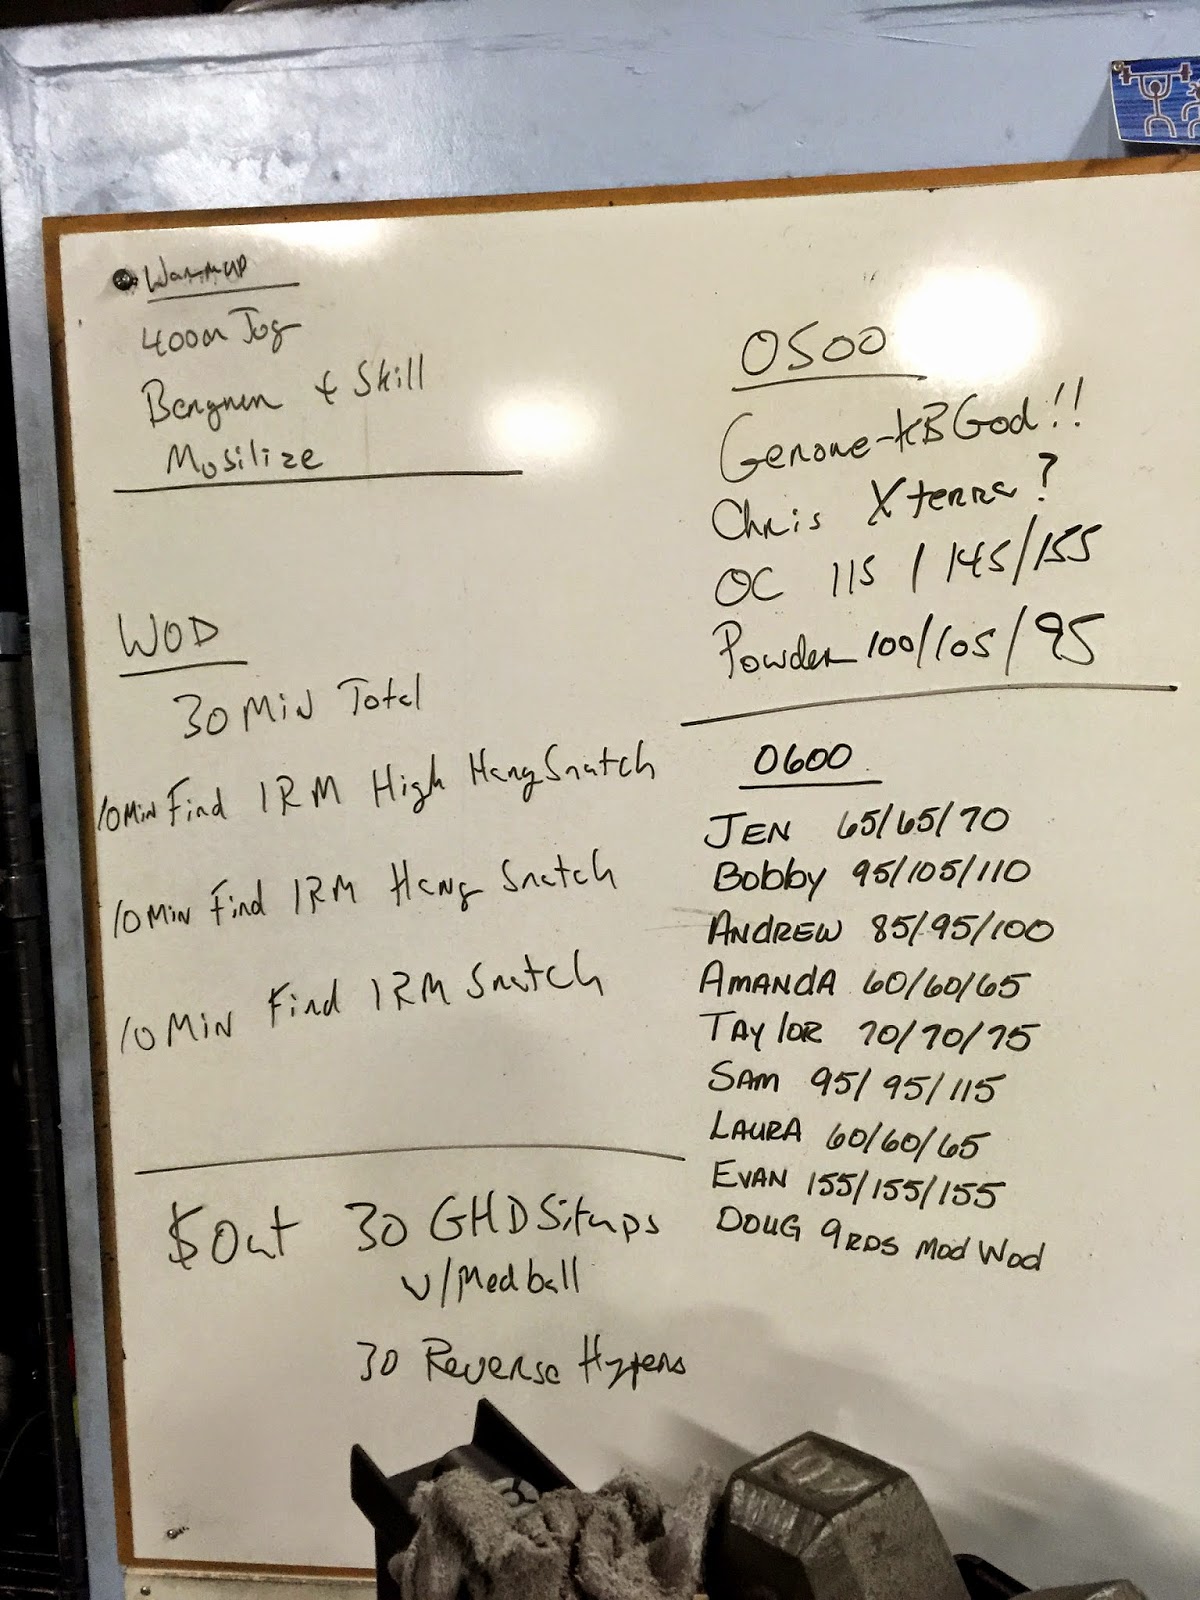 Warmup
400m Jog
Bergnen & Skill
Mosilize
WOD
30 Min Total
10 Min Find 1RM High Hang Snatch
10 Min Find 1RM Hang Snatch
10 Min Find 1RM Snatch
$Out 30 GHD Situps
w/Medball
30 Reverse Hypers
0500
Gerome-KB God!!
Chris Xterra?
OC 115 / 145/155
Powder 100/105/95
0600
JEN 65/65/70
Bobby 95/105/110
ANDREW 85/95/100
AMANDA 60/60/65
TAYLOR 70/70/75
SAM 95/95/115
LAURA 60/60/65
EVAN 155/155/155
DOUG 9RDS Mod Wod